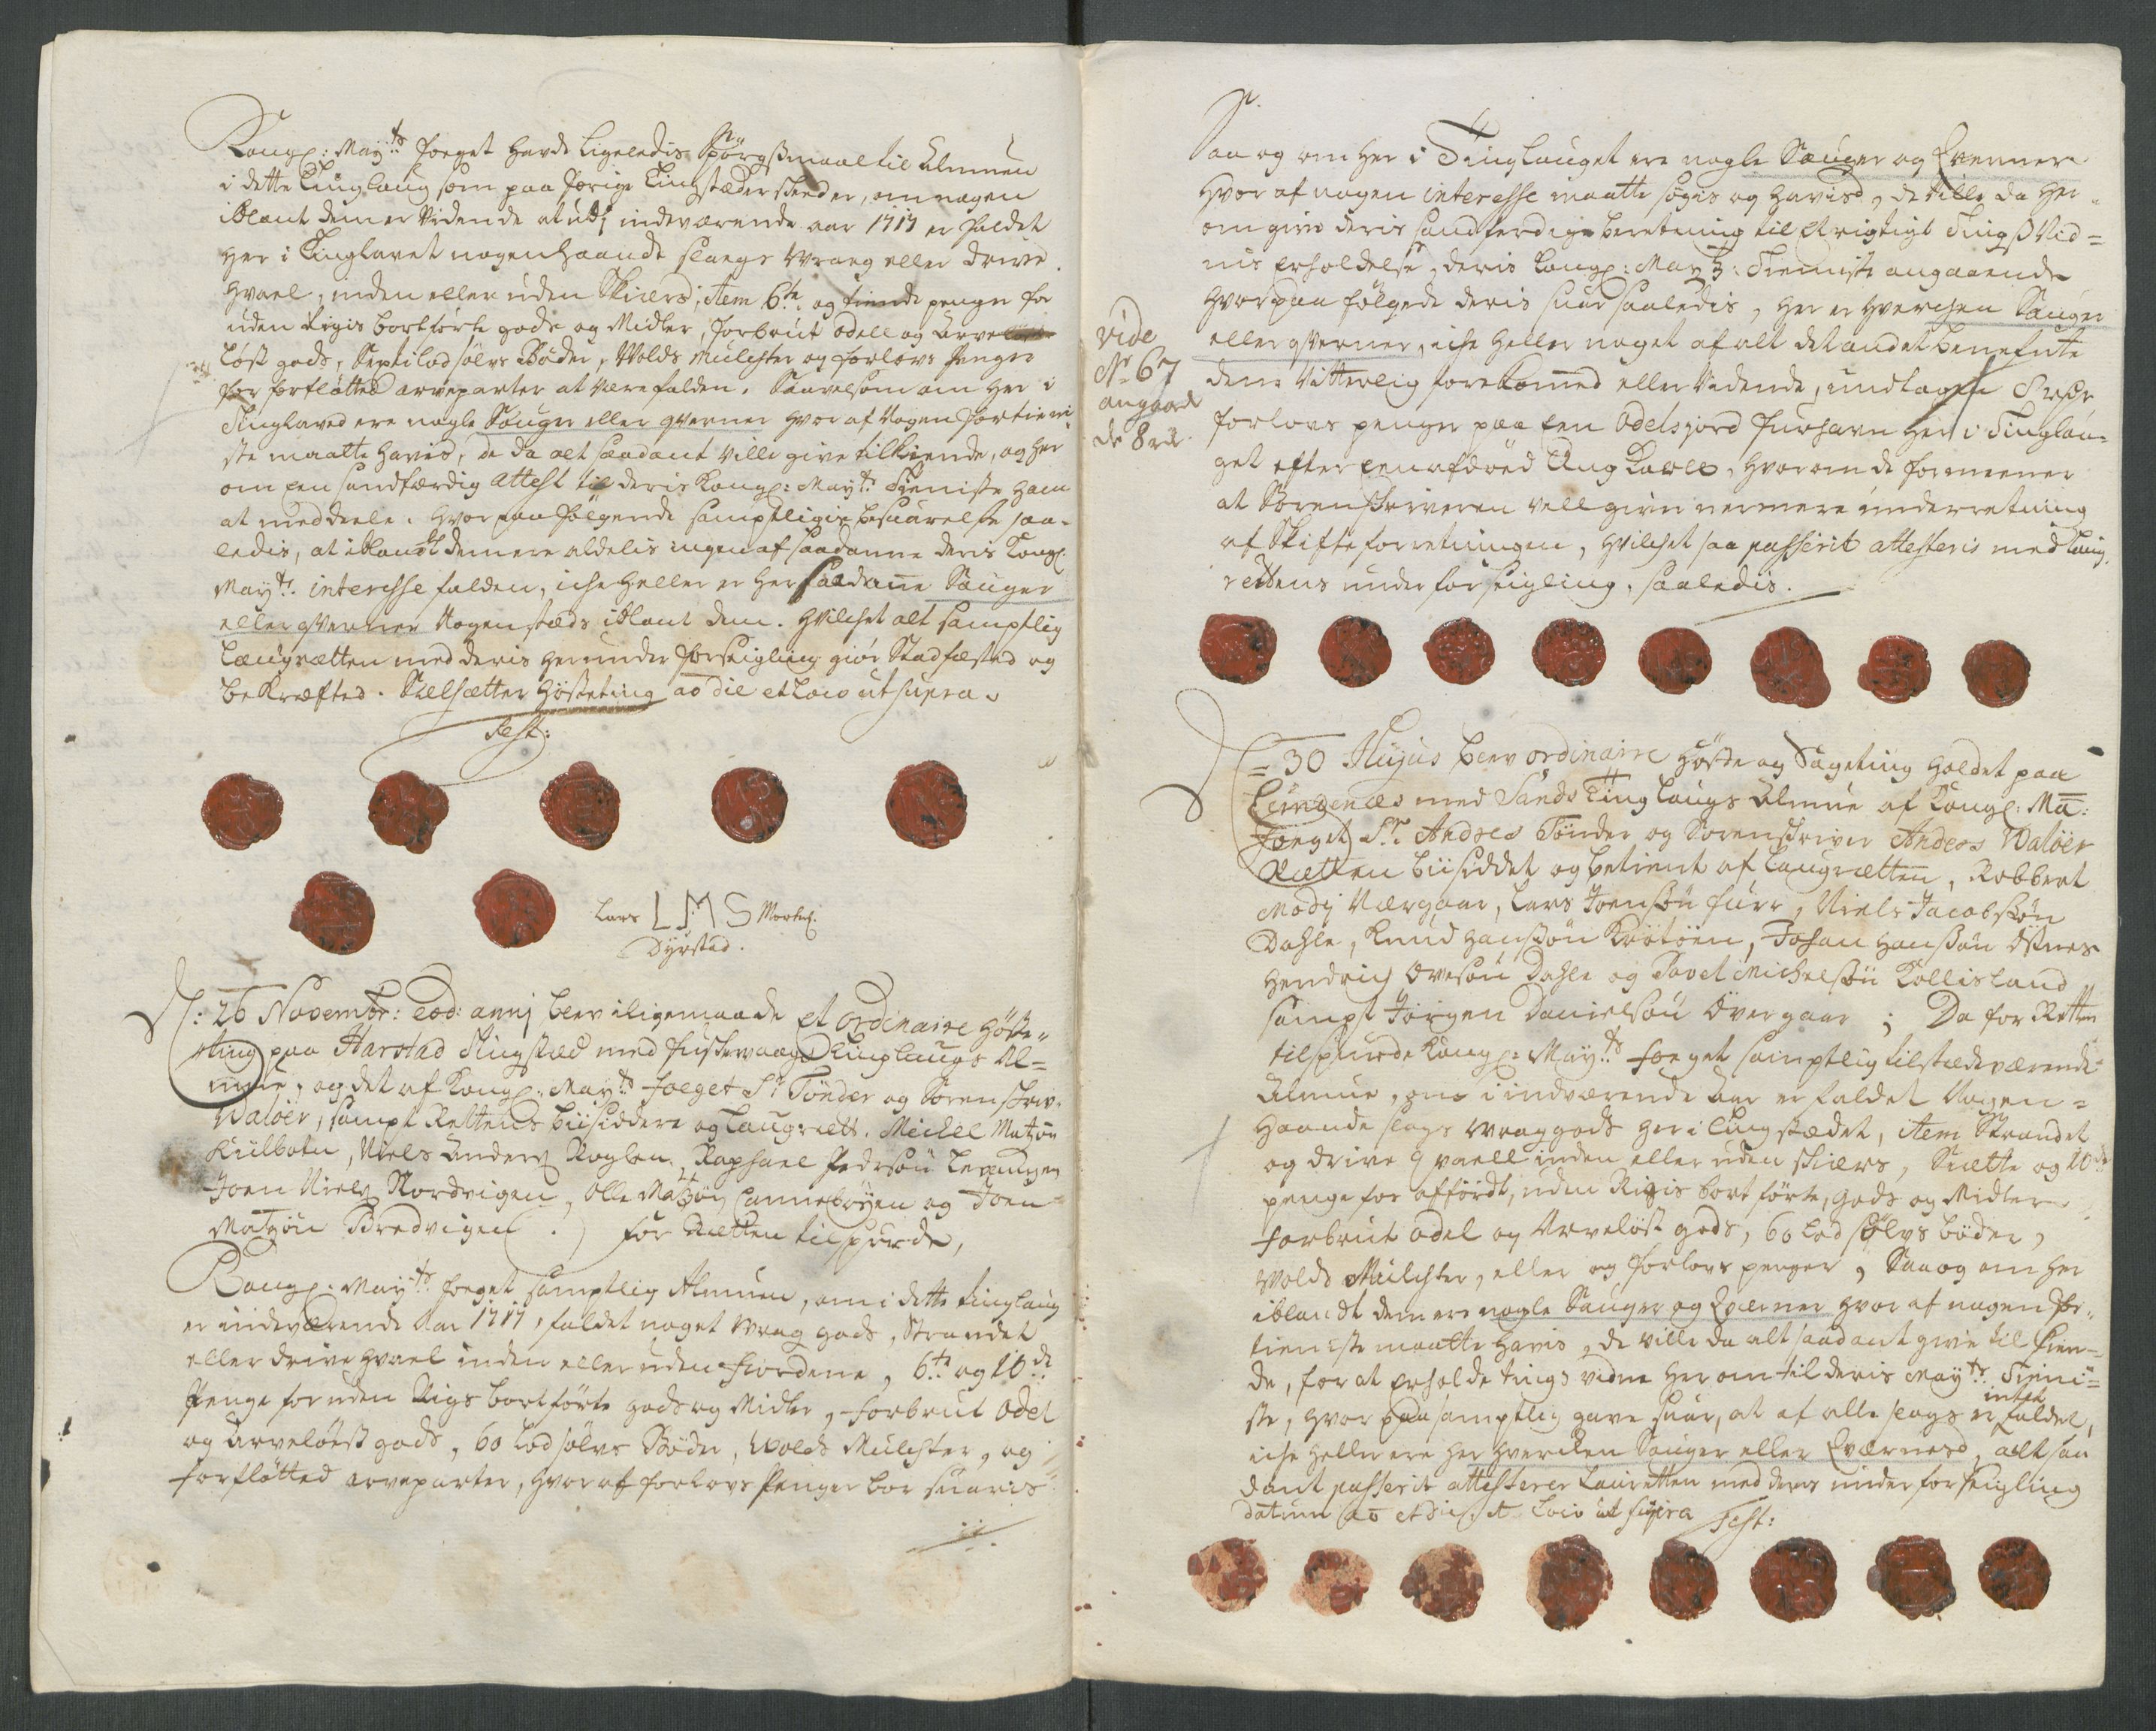 Kongl: May.ts foeget hafde ligeledis Spörgßmaal til Almuen
i dette Tinglaug som paa forige Tingstæder skeeder, om nogen
iblant dem er Vidende at udj indeværende aar 1717 er faldet
her i Tinglavet nogenhaande slaegs Wraeg eller drive
hvael, inden eller uden Skiærs; item 6te og tiende penger for
uden Rigis bortførte gods og Midler, forbrut odell og Arve
løst gods, Sextilod sølvs Bøder, Wolds Mulchter og forlovs Penger
for forfløtted arveparter at være falden. Saavelsom om her i
Tinglaved ere nogle Sauger eller qverner hvoraf Nogen fortieni
ste maatte havis, de da alt saadant ville give tilkiende, og her
om een sandfærdig attest til deris Kongl: May.ts Tieniste ham
at meddeele. Hvorpaa følgende samptligis besuarelse saa-
ledis, at iblandt dem ere aldelis ingen af saadanne deris Kongl
May.ts interesse falden, iche heller er her saadanne Sauger
eller qverner Nogenstæds iblant dem. Hvilchet alt samptlig
Laugrætten med deris herunder forseigling giør Stadfæsted og
bekræfted. Kielsætter Høsteting ao die et loco ut supra.
Test:
Lars LMS Mortens.
Dyrstad.
D: 26 Novembr: eod: annj blev iligemaade et ordinaire Høste-
ting paa Harstad Tingstæd med Tinglaugs Al=
mue, og det af Kongl: May.ts foeget Sr Tønder og Sorenskriv.
Waløer, sampt Rettens biisiddere og Laugrett. Michel Matzøn
Kiilbotn, Niels Anders Rogten, Raphael Pedersøn
Joen Niels Nordvigen, Olle Matzøn og Joen
Matzøn Bredvigen. for Rætten tilspurde,
Kongl: May.ts foeget samptlig Almuen, om i dette tinglaug
er indeværende Aar 1717, faldet noget Wrag gods, Strandet
eller drive hvael inden eller uden fiordene, 6te og 10de
Penge for uden Rigs bortførte gods og Midler, forbrut odel
og Arveløest gods, 60 lod sølvs Bøder, Wolds Mulchter, og
forfløtted arveparter, hvoraf forlovs Penger bør suaris
Saa og om her i Tinglauget ere nogle Sauger og Qverner
hvoraf nogen interesse maatte søgis og havis, de ville da her-
om give deris sandferdige beretning til Et rigtigt TingßVid=
nis Erholdelse, deris Kongl: Mayts: Tieniste angaaende
hvorpaa følgede deris suar saaledis, her er hverchen Sauger
eller qverner, iche heller noget af alt det andet benefnte
dem Vitterlig forekommed eller Vidende, undtagen
forlovs penger paa een odelsjord her i Tinglau-
get efter een afdøed hvorom de formeener
at Sorenskriveren vell giver nermere underretning
af Skifteforretningen, hvilchet saa passerit attesteris med Laug
rettens underforseigling, saaledis.
vide
No 67
angaaende
de 8 rd.
D= 30 Hujus blev ordinaire Høste og Sageting holdet paa
med Sands Tinglaugs Almue af Kongl: Ma:
foeget Sr. Andres Tønder og Sorenskriver Anders Waløer
Rætten biisiddet og betient af Laugrætten, Robbert
Mody Nærgaar, Lars Joensøn furr, Niels Jacobsøn
Dahle, Knud Hansøn Krøtøen, Johan Hansøn Østnes
Hendrich Ovesøn Dahle og Povel Michelsøn Kollisland
sampt Jørgen Danielsøn Øvergaar; Da for Retten
tilspurde Kongl: May.ts foeget samptlig tilstædeværende
Almue, om i indværende Aar er faldet Nogen=
haande slags wraggods her i Tingstædet, item Strandet
og drive qvaell inden eller uden skiærs, Siætte og 10de
penge for afførdt, uden Rigis bort førte, gods og Midler
forbrut odel og Arveløst gods, 60 lod sølvs bøder,
Wolds Mulchter, eller og forlovs penger, Saa og om her
iblandt dem ere nogle Sauger og Qværner hvoraf nogen for-
tieniste maatte havis, de ville da alt saadant give til kien=
de, for at Erholde tings vidne her om til deris May.ts Tieni=
ste, hvor paa samptlig gave suar, at af alle slags er intet faldet,
iche heller ere her hverchen Sauger eller Qværner, alt saa
dant passerit attesterer Lauretten med deres underforseigling
datum ao et die et loco ut supra Test: